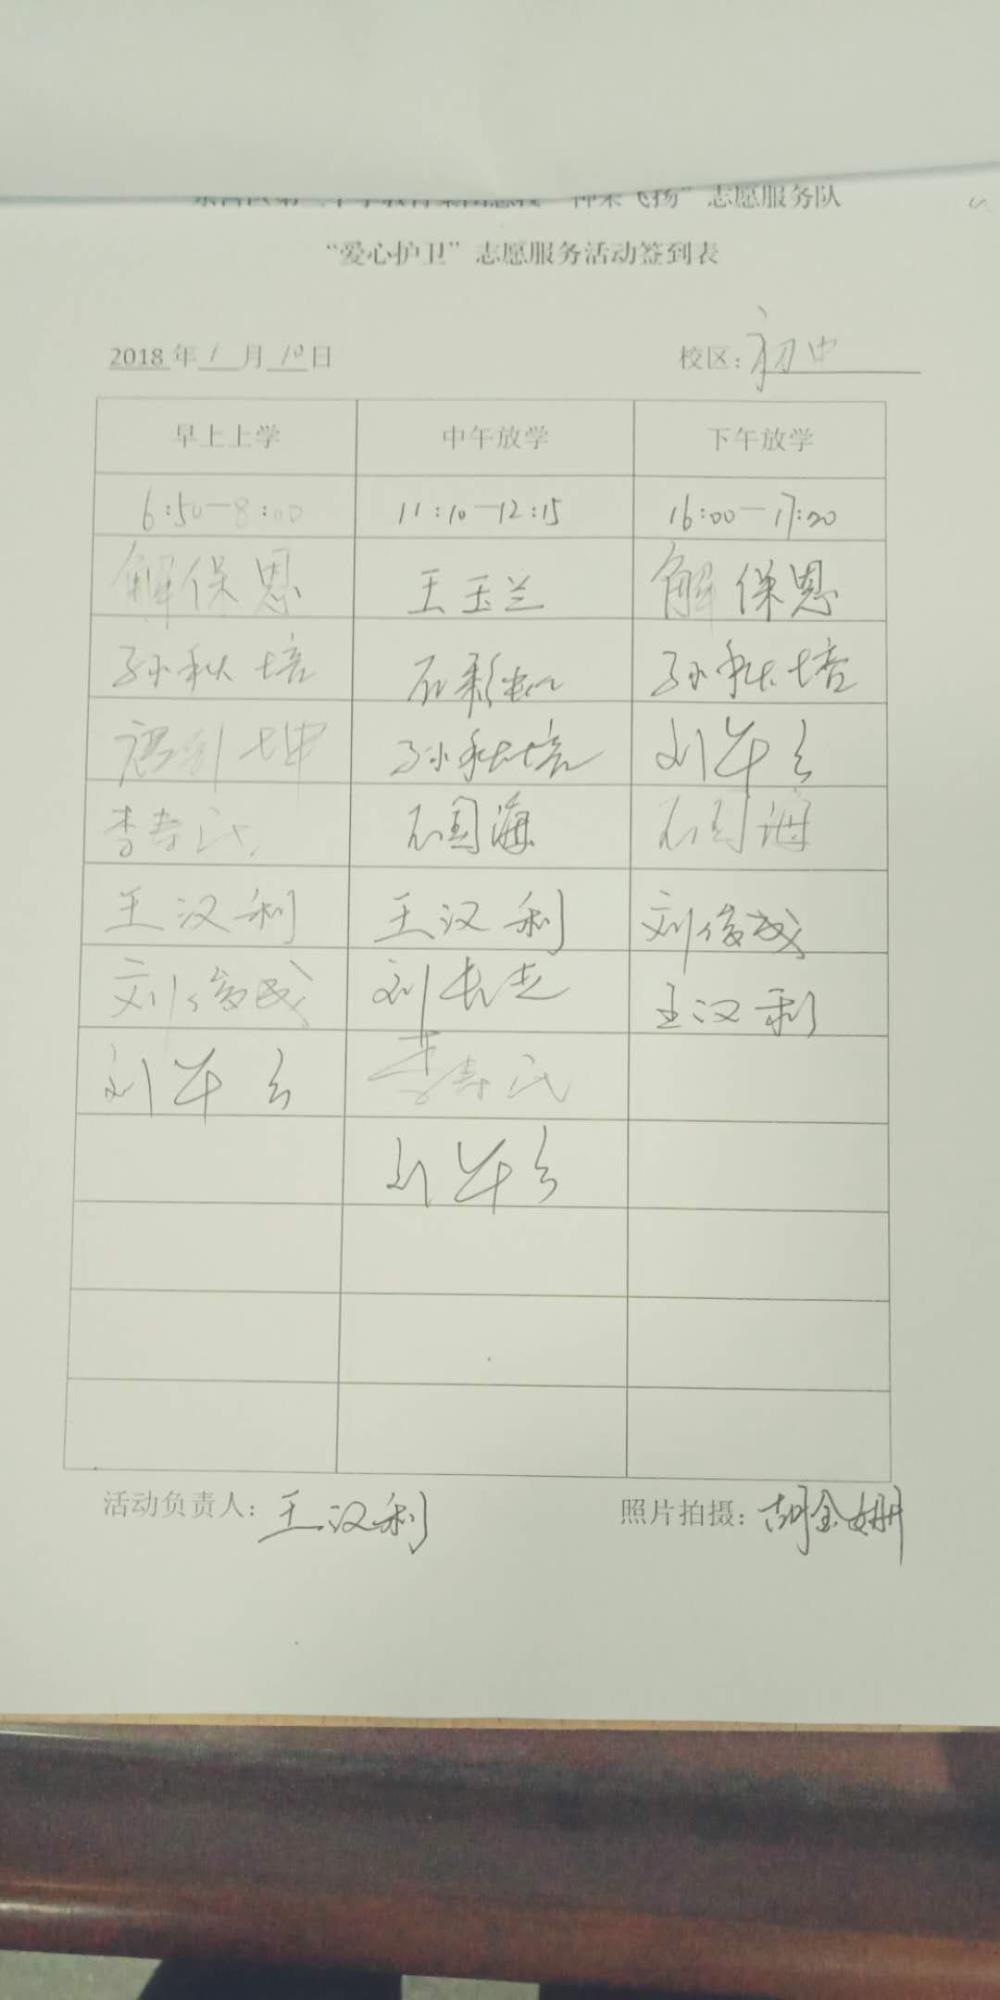 神采飞扬”志愿服务队
“爱心护卫”志愿服务活动签到表
2018年1月10日 校区:初中
早上上学 中午放学 下午放学
6:50-8:00 11:10-12:15 16:00-17:20
解保恩 王玉兰 解保恩
孙秋培 石彩虹 孙秋培
孙秋培 刘华云
李寿民 石国海 石国海
王汉利 王汉利 刘俊成
刘俊成 刘长志 王汉利
刘华云 李寿民
刘华云
活动负责人:王汉利 照片拍摄:胡金姗